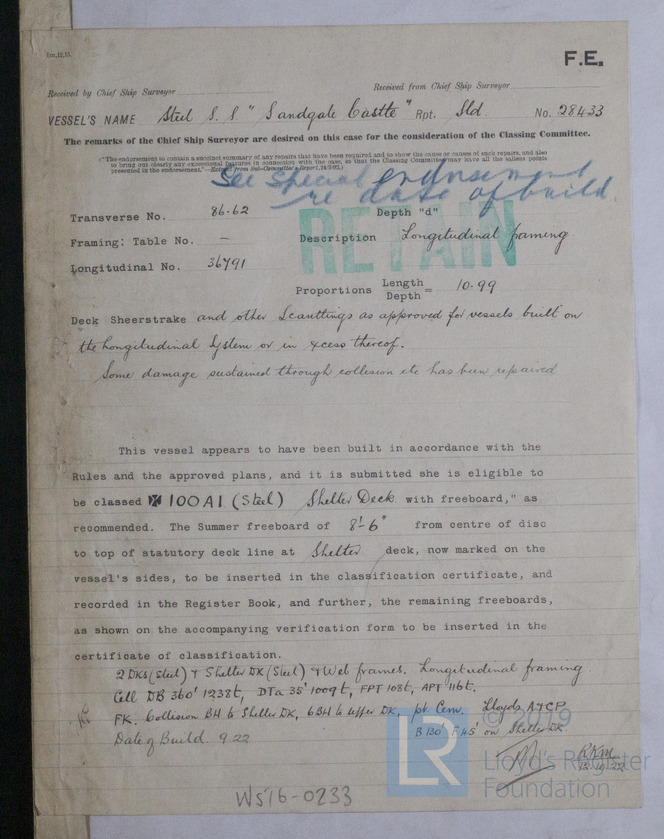 F.E.
Received by Chief Ship Surveyor
Received from Chief Ship Surveyor
VESSEL'S NAME Steel S.S "Sandgate Castle" Rpt. Sld. No. 28433
The remarks of the Chief Ship Surveyor are desired on this case for the consideration of the Classing Committee.
("The endorsement to contain a succinct summary of any repairs that have been required and to show the cause or causes of such repairs, and also
to bring out clearly any exceptional features in connection with the case, so that the Classing Committee may have all the salient points
presented in the endorsement."—Extract from Sub-Committee's Report,
See Special endorsement
re date of build.
RETAIN
Transverse No. 86.62
Depth "d"
Framing: Table No. —
Description Longitudinal framing
Longitudinal No. 36791
Proportions Length = 10.99
Depth
Deck Sheerstrake and other Scantlings as approved for vessels built on
the Longitudinal System or in xcess thereof.
Some damage sustained through collision etc has been repaired
This vessel appears to have been built in accordance with the
Rules and the approved plans, and it is submitted she is eligible to
be classed ✠ 100A1 (Steel) Shelter Deck with freeboard," as
recommended. The Summer freeboard of 8'-6" from centre of disc
to top of statutory deck line at Shelter deck, now marked on the
vessel's sides, to be inserted in the classification certificate, and
recorded in the Register Book, and further, the remaining freeboards,
as shown on the accompanying verification form to be inserted in the
certificate of classification.
2 DKs (steel) & Shelter DK (Steel) & Web frames. Longitudinal framing
Cell DB 360' 1238t, DTa 35' 1009t, FPT 108t, APT 116t.
FK. Collision BH to Shelter DK, 6BH to upper DK, pt Cem. Lloyds A&CP
B 130' F 45' on Shelter DK
Date of Build. 9.22
RKM
WS16-0233
LR
© 2019
Lloyd's Register
Foundation